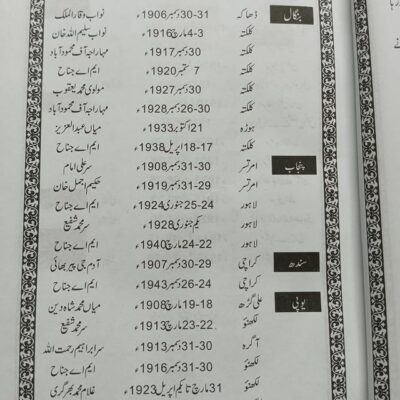 بنگال ڈھاکہ 30-31 دسمبر 1906ء نواب وقار الملک
کلکتہ 3-4 مارچ 1916ء نواب سلیم اللہ خان
کلکتہ 30 دسمبر 1917ء مہاراجہ آف محمود آباد
کلکتہ 7 ستمبر 1920ء ایم اے جناح
کلکتہ 30 دسمبر 1927ء مولوی محمد یعقوب
کلکتہ 26-30 دسمبر 1928ء مہاراجہ آف محمود آباد
ہوڑہ 21 اکتوبر 1933ء میاں عبدالعزیز
کلکتہ 17-18 اپریل 1938ء ایم اے جناح
پنجاب امرتسر 30-31 دسمبر 1908ء سر علی امام
امرتسر 29-31 دسمبر 1919ء حکیم اجمل خان
لاہور 24-25 جنوری 1924ء ایم اے جناح
لاہور یکم جنوری 1928ء سر محمد شفیع
لاہور 22-24 مارچ 1940ء ایم اے جناح
سندھ کراچی 29-30 دسمبر 1907ء آدم جی پیر بھائی
کراچی 24-26 دسمبر 1943ء ایم اے جناح
یوپی علی گڑھ 18-19 مارچ 1908ء میاں محمد شاہ دین
لکھنؤ 22-23 مارچ 1913ء سر محمد شفیع
آگرہ 30-31 دسمبر 1913ء سر ابراہیم رحمت اللہ
لکھنؤ 30-31 دسمبر 1916ء ایم اے جناح
لکھنؤ 31 مارچ تا یکم اپریل 1923ء غلام محمد بھرگری